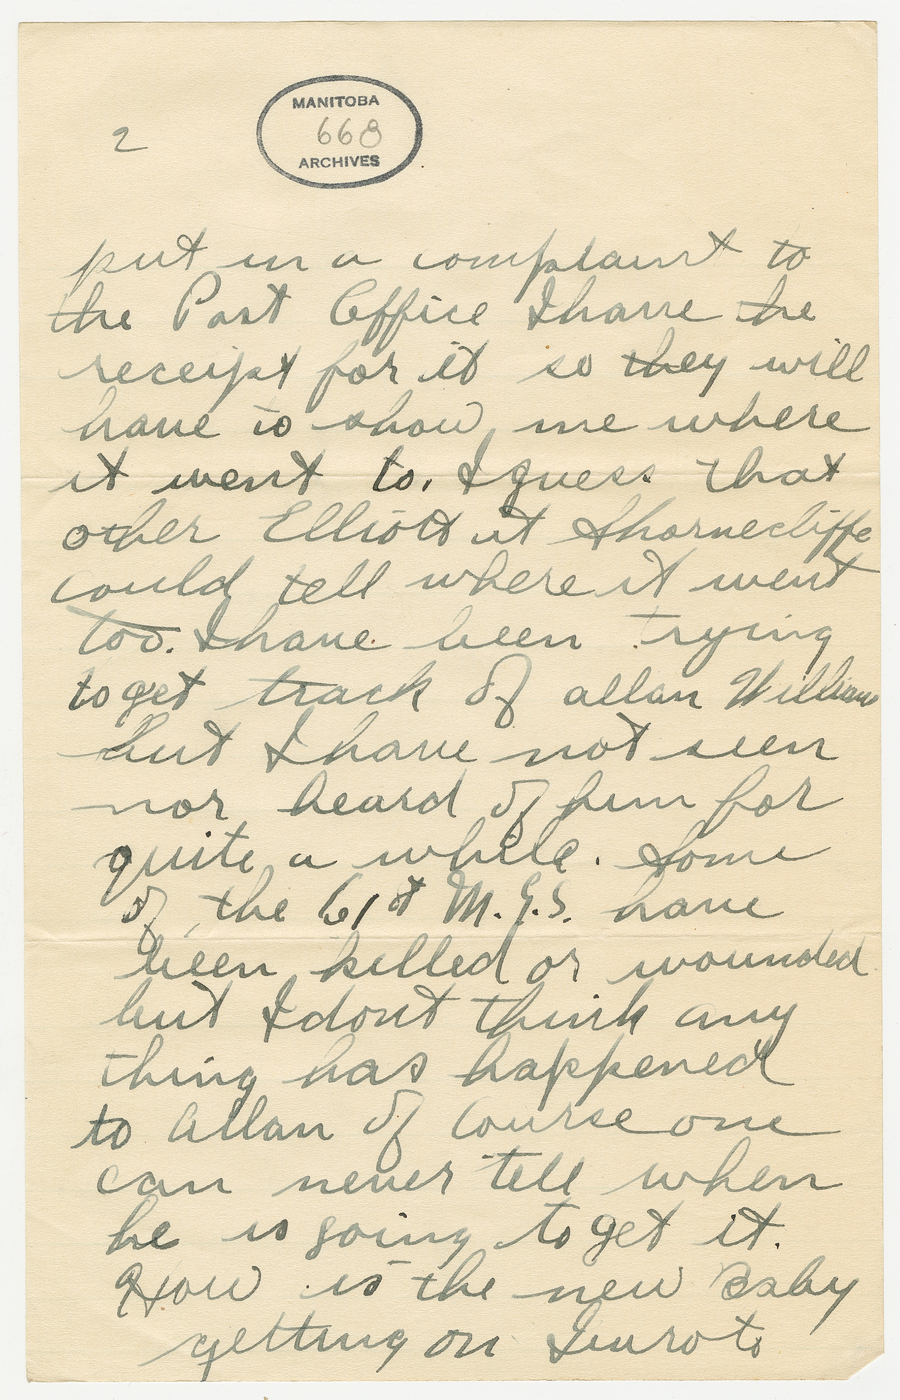 MANITOBA
668
ARCHIVES
2
put in a complaint to
the Post Office I have he
receipt for it so they will
have to show me where
it went to. I guess that
other Elliott at Shornecliffe
could tell where it went
too. I have been trying
to get track of allan Williams
but I have not seen
nor heard of him for
quite a while. Some
of the 61st M.G.S. have
been killed or wounded
but I dont think any
thing has happened
to allan of course one
can never tell when
he is going to get it.
How is the new Baby
getting on I wrote